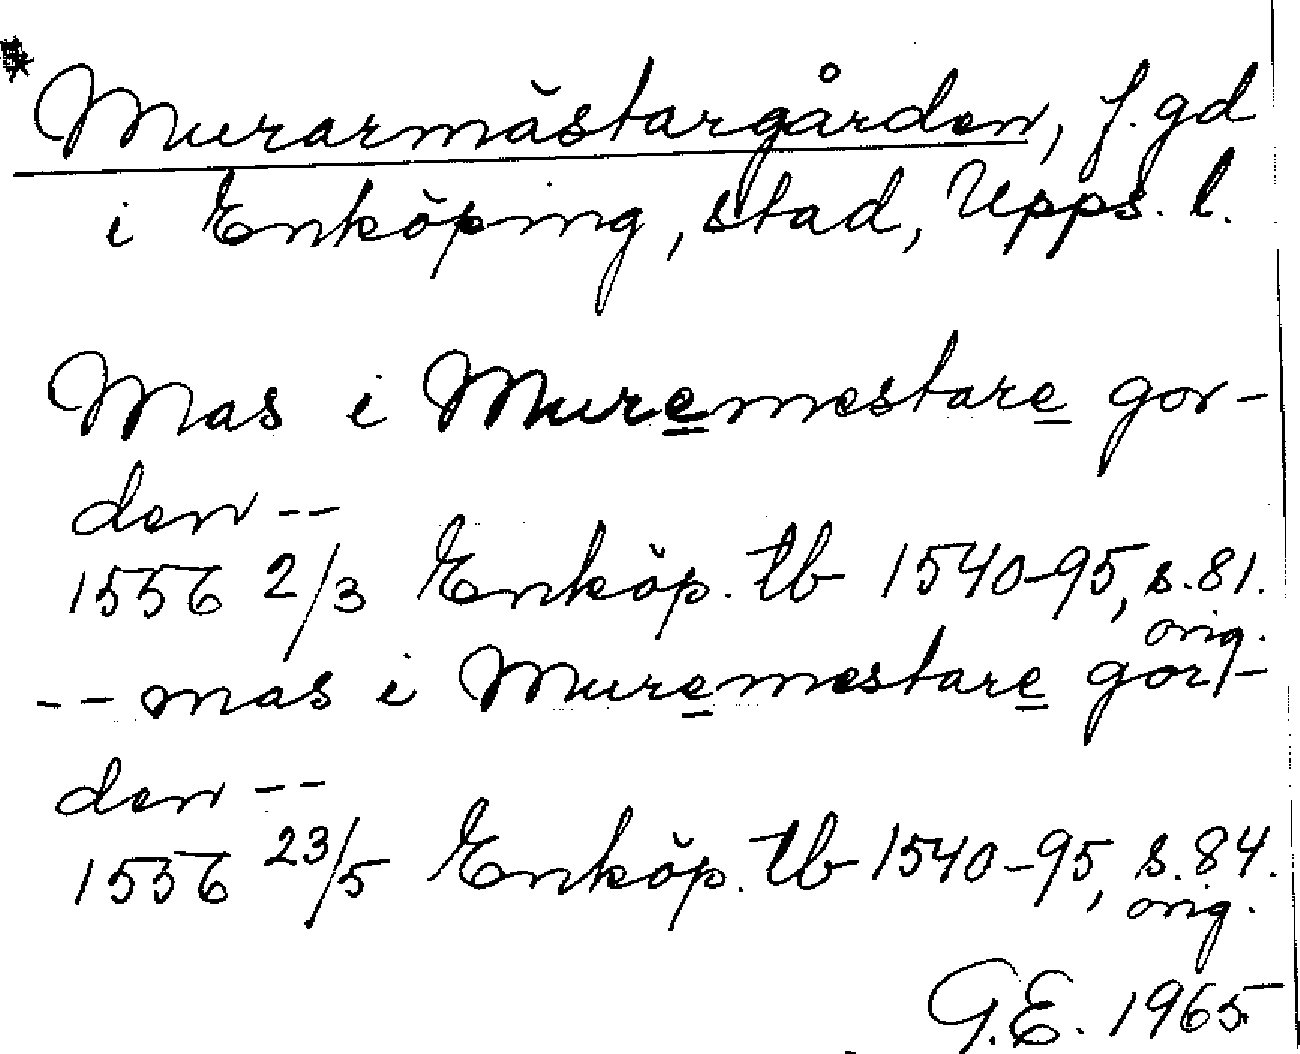 * Murarmästargården, f. gd
i Enköping, stad, Upps. l.
Mas i Muremestare gor-
den --
1556 2/3 Enköp. tb 1540-95, s. 81.
orig.
-- mas i Muremestare gor-
den --
1556 23/5 Enköp. tb 1540-95, s. 84.
orig.
G.E. 1965